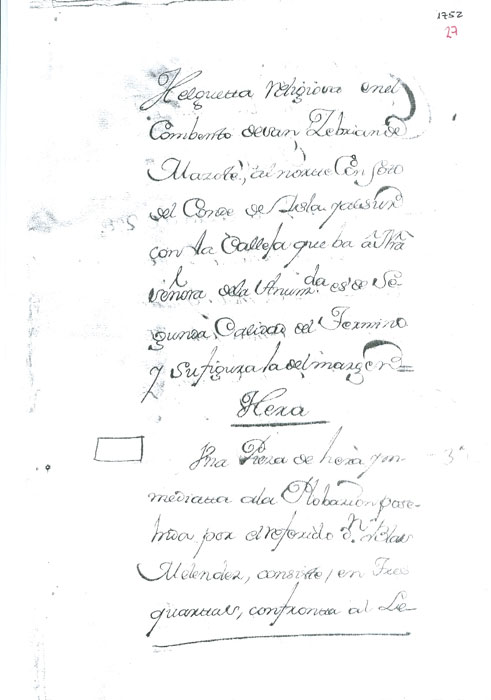 1752
27
Helguetta religiosa en el
Combento de san Zebrian de
Mazote, al norte Con foro
del Conde de Isla, y al sur
con la Calleja que ba â Nrâ
señora de la Anunz.da es de Se-
gunda Calidad del Termino
y su figura la del margen =
Hera
Una Pieza de hera ynn-
mediatta a la Poblazion pose-
hida por el referido d.n Blas
Melendez, consitte, en Tres
quarttas, confrontta al Le-